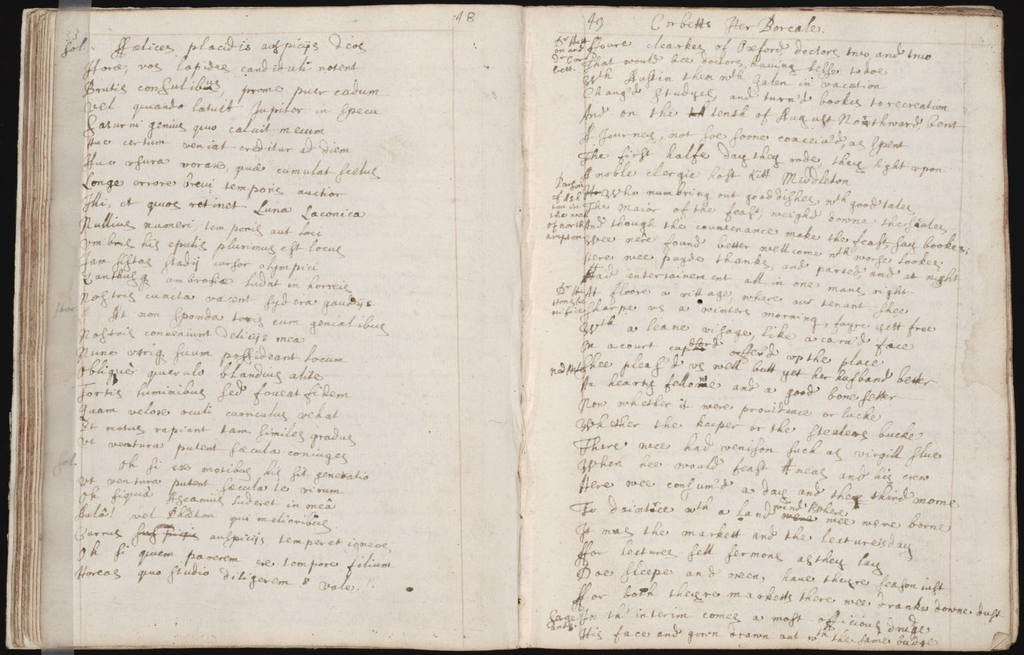 48
Sol. Fælices placidis auspicijs dies
Horæ, vos lapides candiduli notent
Brutis consulibus, prome puer cadum
Vel quando latuit Jupiter in specu
Saturni genius quo caluit mecum
certum veniat creditur ad diem
Hac usura vorax, quæ cumulat scelus
Longe errore brevi temporis auctior
Illi, et quos retinet Luna Laconica
Nullius numeri temporis aut loci
Umbris his epulis plurimus est locus
Jam sistas stadij cursor olympici
ambrosiæ ludat in horreis
Nostris cuncta vacent sydera gaudijs
At non sponda toris cum genialibus
Nostris conveniunt delicijs mea
Nunc utrique suum possideant locum
Obliquè querulo blandius alite
Fortis luminibus sed foveat fidem
Quam velox oculi curriculus vehat
Et motus rapiant tam similes gradus
Ut ventura putent sæcula coniuges
Sol. Oh si ex motibus his sit generatio
Ut ventura putent sæcula te virum
Oh siqua luderet in meâ
vel Phæton qui melioribus
Currus auspicijs temperet igneos
Oh si quem parerem tempore filium
Horeas quo studio diligerem &c vale.
49 Corbetts Iter Boreale.
Foure clearkes of Oxford doctors two, and two
That would bee doctors, having lesse to doe
With Austin then with Galen in vacation
Chang'd studyes, and turn'd bookes to recreation
And on the tenth of August Northward bent
A Journey, not soe soone conceiu'd, as spent
The first halfe day they rode, they light vpon
A noble clergie host Kitt Middleton
Who numbring out good dishes with good tales
The maior of the feast weigh'd downe the scales
And though the countenance make the feast, say bookes;
Wee nere found better wellcome with worse lookes;
Here wee payde thanks, and parted, and at night
Had entertainement all in one mans right
At Floore a village, where our tenant shee
Sharpe as a winters morning, fayre yett free
With a leane visage, like a caru'd face
In a court cupbord offer'd vp the place
Shee pleas'd vs well but yet her husband better
An hearty fellowe and a good bone setter
Now whether it were providence or lucke
Whether the keeper or the stealers bucke
There wee had venison such as virgill slue
When hee would feast Æneas and his crew
Here wee consum'd a day and the third morne
To daintree with a land wind wee were borne
It was the markett and the lectureday
For lectures sell sermons as they lay
Doe sheepe and oxen, have theyre season just
For both theyre marketts there wee dranke downe dust
In th' interim comes a most officious drudge
His face and gown drawn out with the same budge